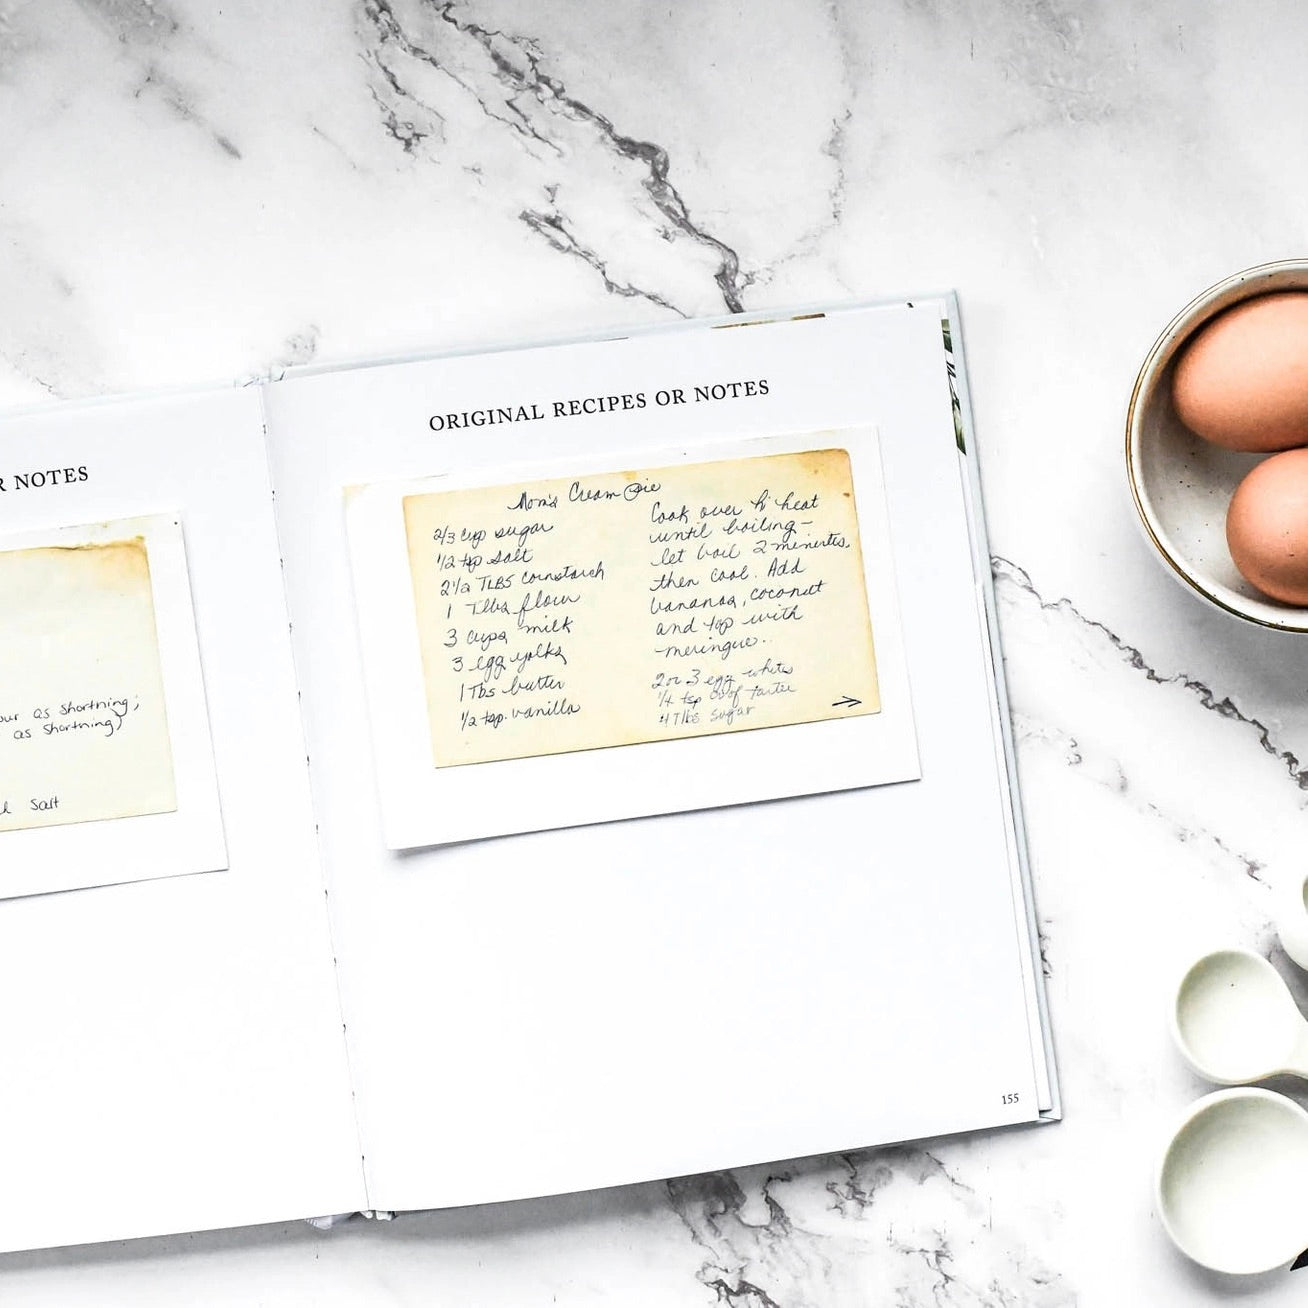 R NOTES
our as shortning;
as shortning)
Salt
ORIGINAL RECIPES OR NOTES
Mom's Cream Pie
2/3 cup sugar
1/2 tsp salt
2 1/2 TLBS cornstarch
1 Tlbs flour
3 cups milk
3 egg yolks
1 Tbs butter
1/2 tsp. vanilla
Cook over h heat
until boiling-
let boil 2 minutes,
then cool. Add
bananas, coconut
and top with
meringue..
2 or 3 egg whites
1/4 tsp of tarter
4 Tlbs sugar
155